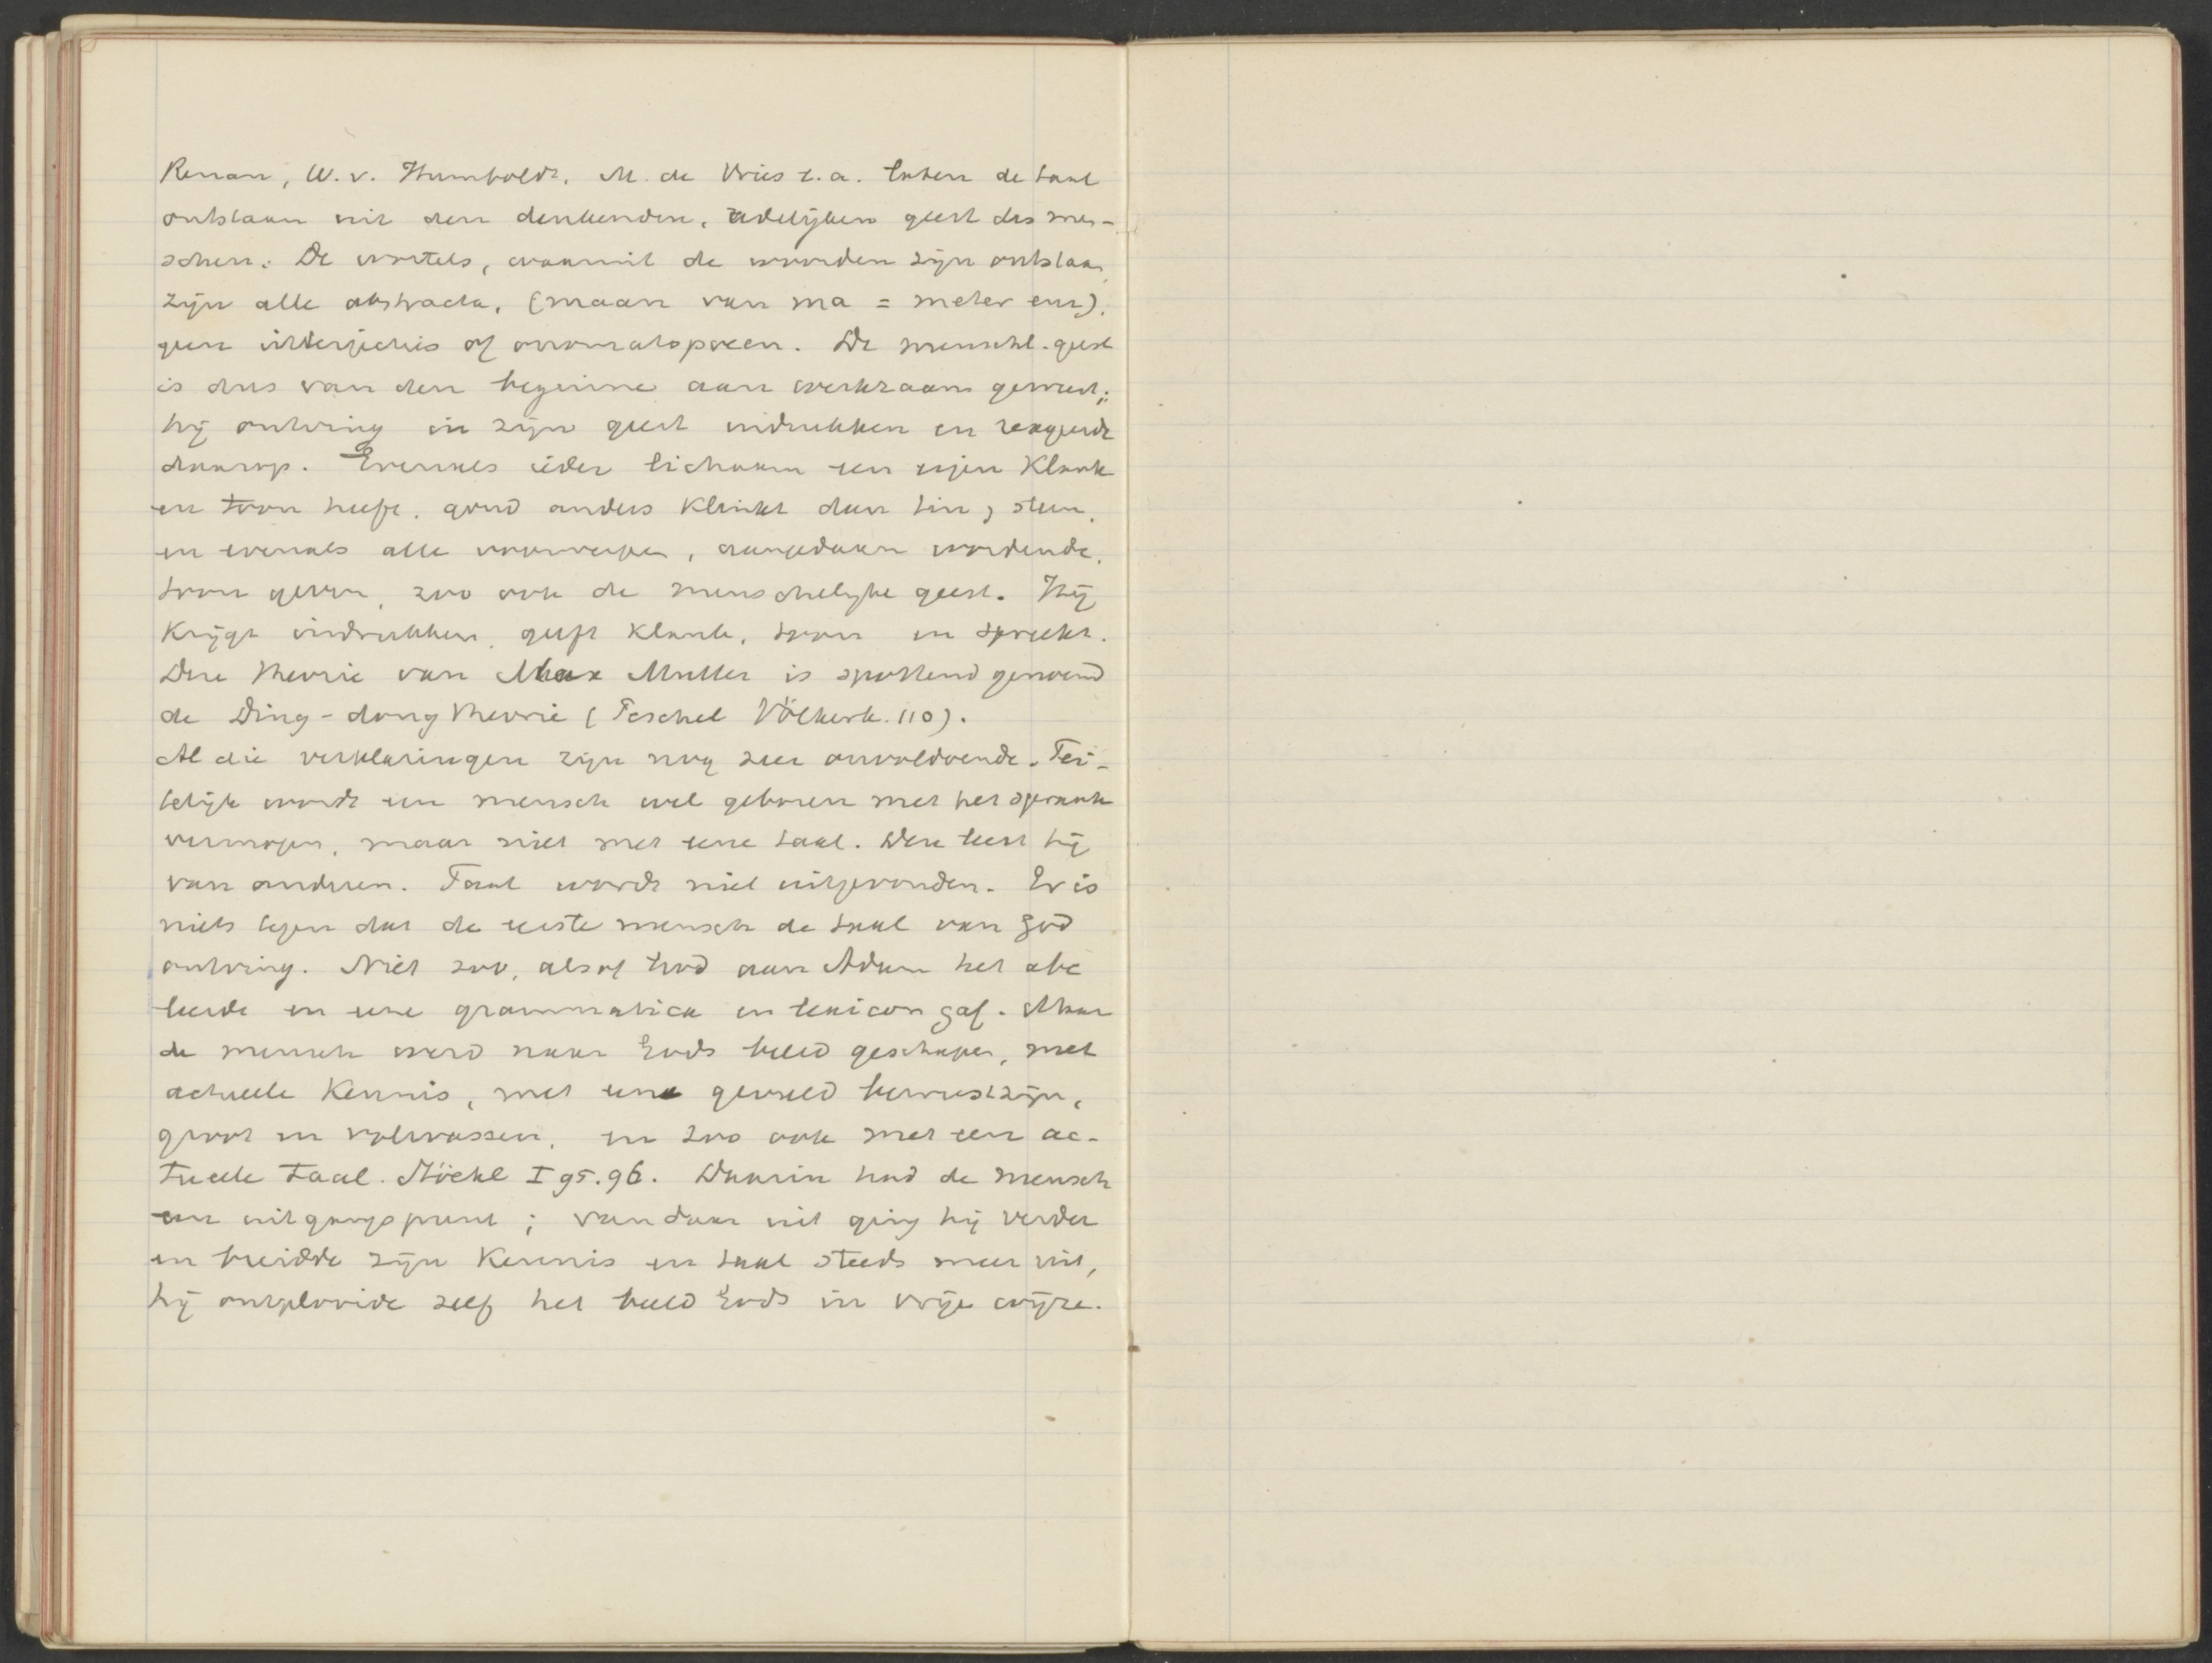 Renan, W. v. Humboldt, M. de Vries e.a. laten de taal
ontstaan uit den denkenden, redelijken geest des men-
schen: De wortels, waaruit de woorden zijn ontstaan,
zijn alle abstracta, (maan van ma = meter enz),
geen interjecties of onomatopoeen. De menschl. geest
is dus van den beginne aan werkzaam geweest;
hij ontving in zijn geest indrukken en reageerde
daarop. Evenals ieder lichaam een eigen klank
en toon heeft, goud anders klinkt dan tin, steen,
en evenals alle voorwerpen, aangedaan wordende,
toon geven, zoo ook de menschelijke geest. Hij
krijgt indrukken, geeft klank, toon en spreekt.
Deze theorie van Max Muller is spottend genoemd
de Ding-dong theorie (Peschel Völkerk. 110).
Al die verklaringen zijn nog zeer onvoldoende. Fei-
telijk wordt een mensch wel geboren met het spraak
vermogen, maar niet met eene taal. Deze leert hij
van anderen. Taal wordt niet uitgevonden. Er is
niets tegen dat de eerste mensch de taal van God
ontving. Niet zoo, alsof God aan Adam het abc
leerde en eene grammatica en lexicon gaf. Maar
de mensch werd naar Gods beeld geschapen, met
actueele kennis, met een gevuld bewustzijn,
groot en volwassen, en zoo ook met een ac-
tueele taal. Stöckl I 95.96. Daarin had de mensch
een uitgangspunt; van daar uit ging hij verder
en breidde zijn kennis en taal steeds meer uit,
hij ontplooide zelf het beeld Gods in vrije wijze.